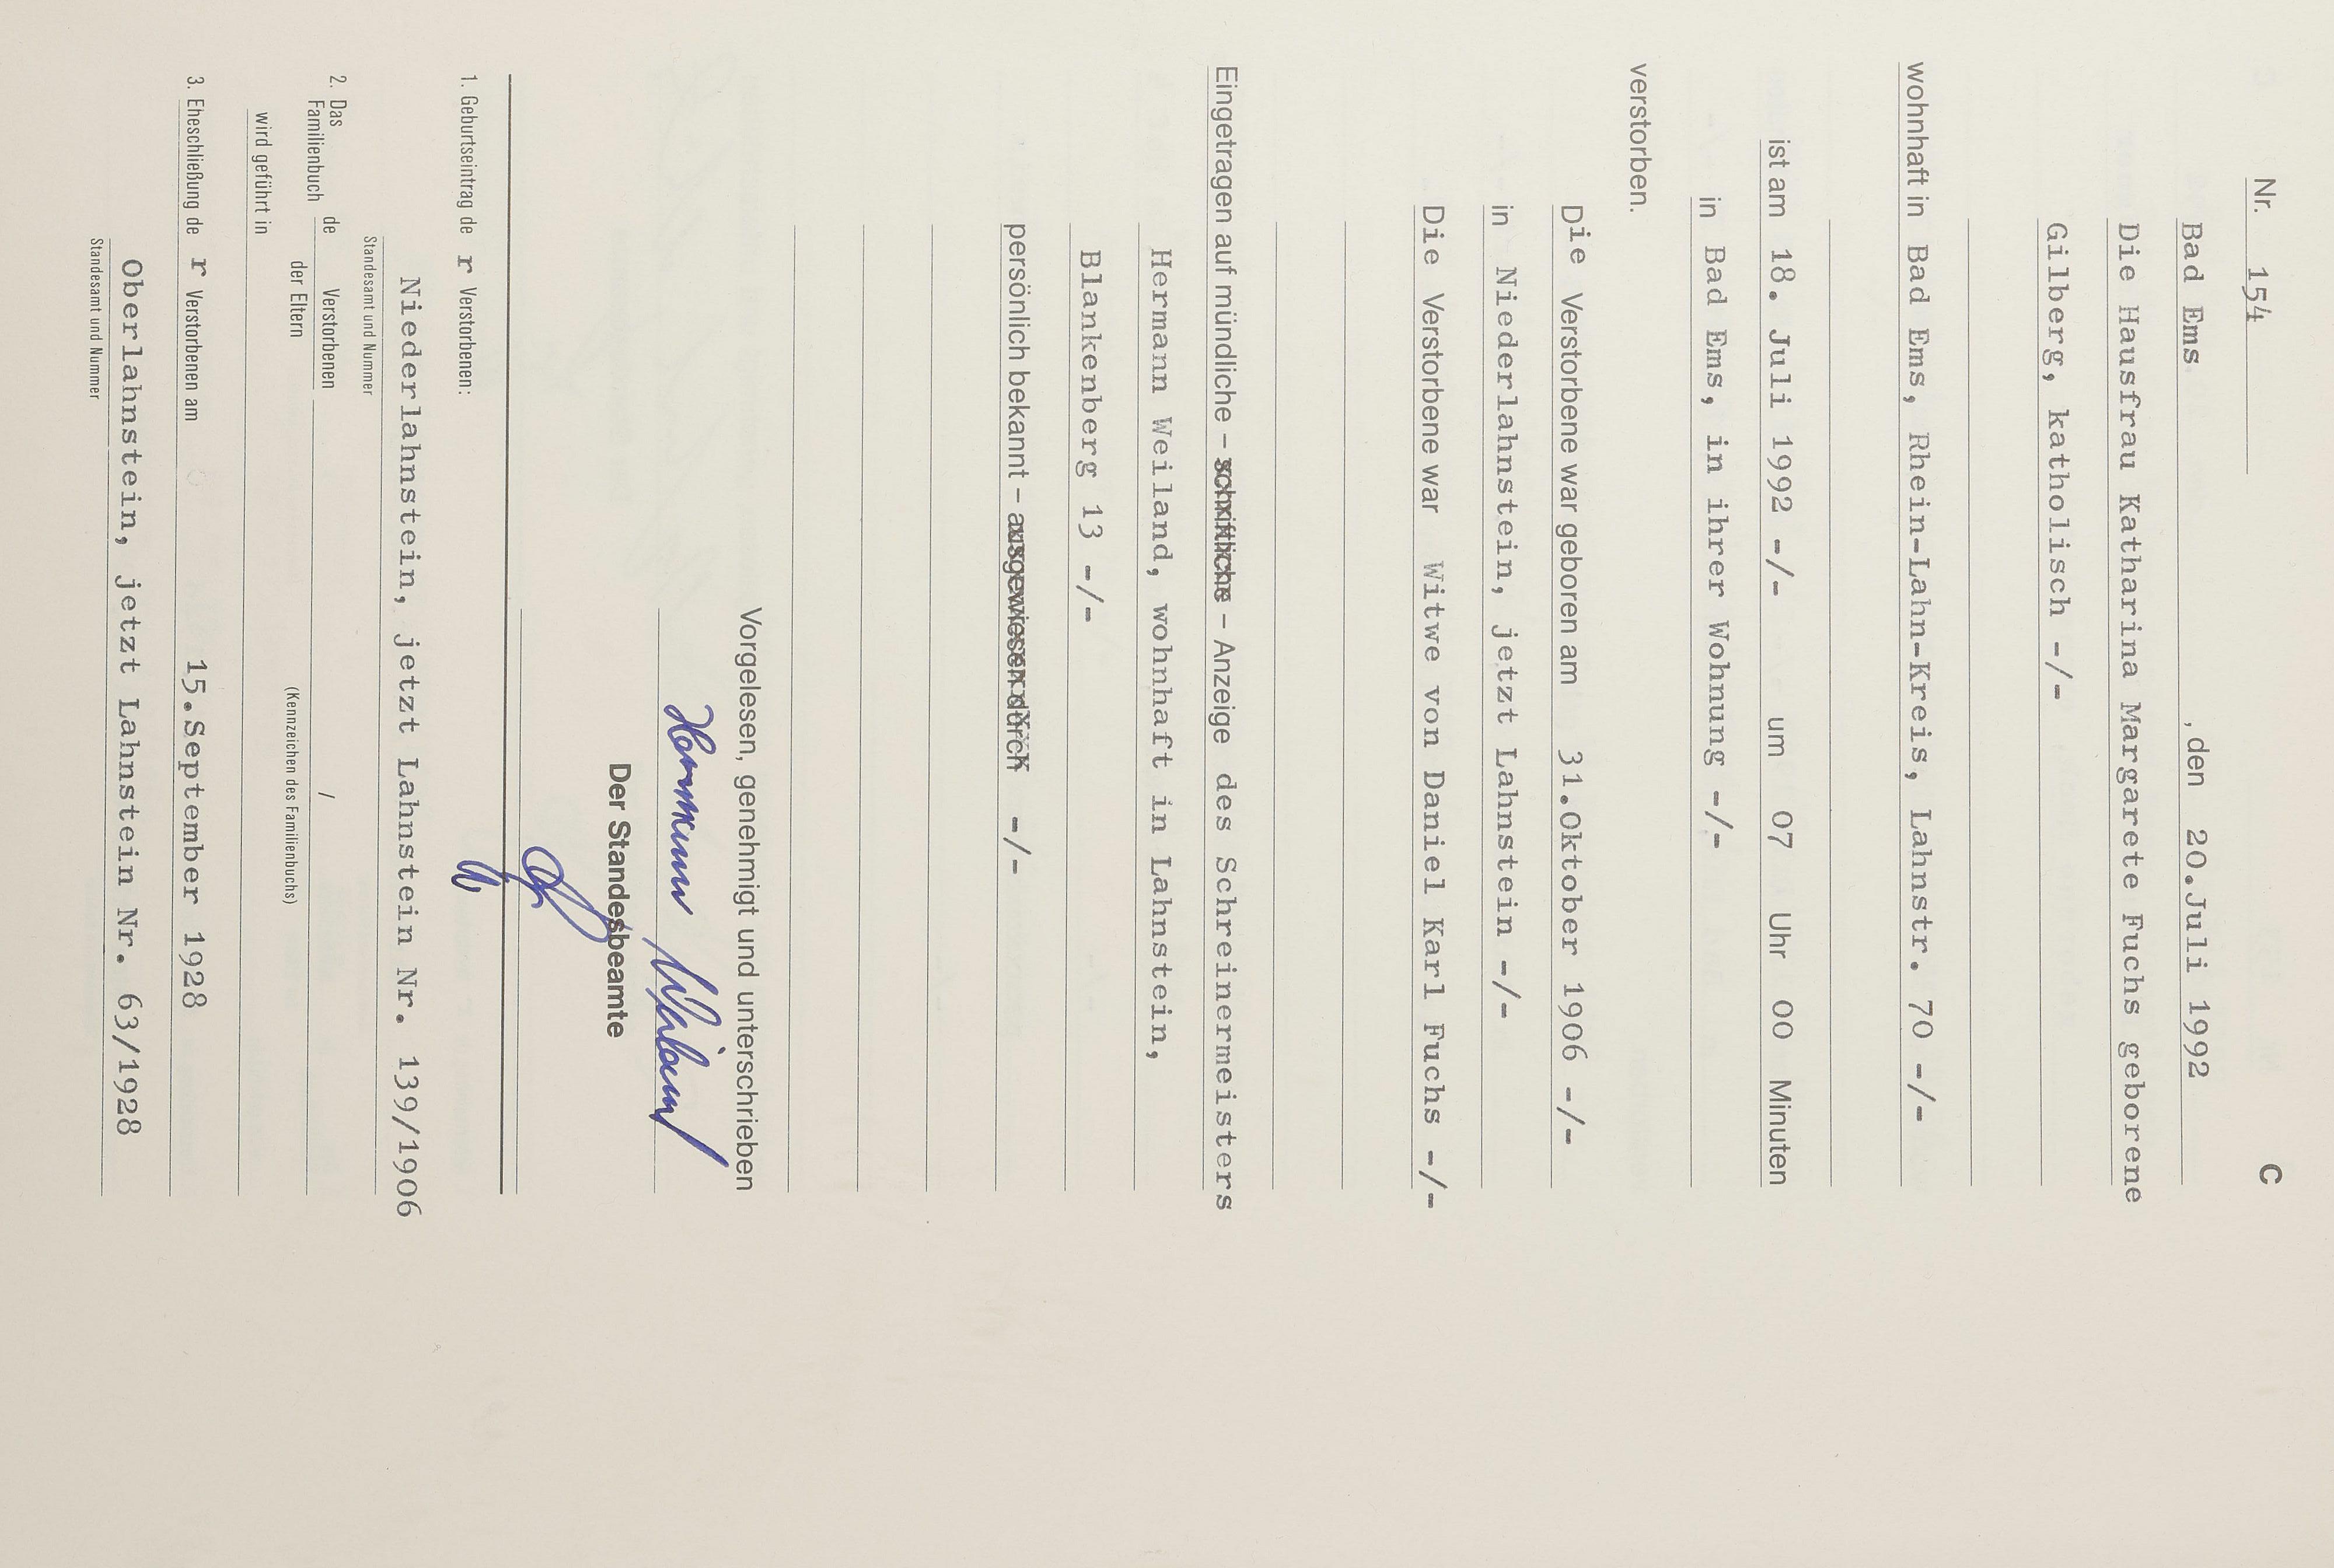 Nr. 154 C
Bad Ems, den 20.Juli 1992
Die Hausfrau Katharina Margarete Fuchs geborene
Gilberg, katholisch -/-
wohnhaft in Bad Ems, Rhein-Lahn-Kreis, Lahnstr. 70 -/-
ist am 18. Juli 1992 -/- um 07 Uhr 00 Minuten
in Bad Ems, in ihrer Wohnung -/-
verstorben.
Die Verstorbene war geboren am 31.Oktober 1906 -/-
in Niederlahnstein, jetzt Lahnstein -/-
Die Verstorbene war Witwe von Daniel Karl Fuchs -/-
Eingetragen auf mündliche – schriftliche – Anzeige des Schreinermeisters
Hermann Weiland, wohnhaft in Lahnstein,
Blankenberg 13 -/-
persönlich bekannt – ausgewiesen durch -/-
Vorgelesen, genehmigt und unterschrieben
Hermann Weiland
Der Standesbeamte
1. Geburtseintrag de r Verstorbenen:
Niederlahnstein, jetzt Lahnstein Nr. 139/1906
Standesamt und Nummer
2. Das Familienbuch de Verstorbenen /
der Eltern (Kennzeichen des Familienbuchs)
wird geführt in
3. Eheschließung de r Verstorbenen am 15.September 1928
Oberlahnstein, jetzt Lahnstein Nr. 63/1928
Standesamt und Nummer